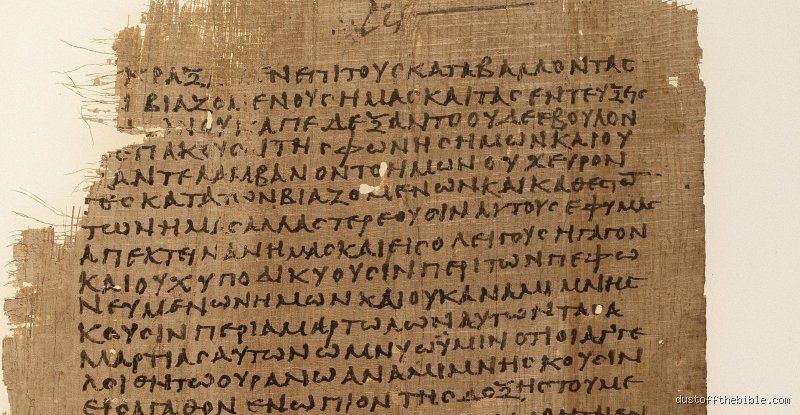 ΚΡΑΞ ΝΕΠΙΤΟΥСΚΑΤΑΒΑΛΛΟΝΤΑС
ΒΙΑΖΟΜΕΝΟΥСΗΜΑСΚΑΙΤΑСΕΝΤΕΥΞΙС
ΑΠΕΔΕΞΑΝΤΟΟΥΔΕΕΒΟΥΛΟΝ
ΕΠΑΚΟΥС ΙΤΗСΦΩΝΗСΗΜΩΝΚΑΙΟΥ
ΑΝΤΕΛΑΜΒΑΝΟΝΤΟΗΜΩΝΟΥΧΕΥΡΟΝ
ΤΕСΚΑΤΑΤΩΝΒΙΑΖΟΜΕΝΩΝΚΑΙΚΑΘΕСΤΩ
ΤΩΝΗΜΑСΑΛΛΑСΤΕΡΕΟΥСΙΝΑΥΤΟΥСΕΦΥΜΑС
ΑΠΕΚΤΕΙΝΑΝΗΜΑСΚΑΙΕΙСΟΛΕΙΓΟΥСΗΓΑΓΟΝ
ΚΑΙΟΥΧΥΠΟΔΙΚΥΟΥСΙΝΠΕΡΙΤΩΝΠΕΦΩ
ΝΕΥΜΕΝΩΝΗΜΩΝΚΑΙΟΥΚΑΝΑΜΙΜΝΗС
ΚΟΥСΙΝΠΕΡΙΑΜΑΡΤΩΛΩΝΑΥΤΩΝΤΑСΑ
ΜΑΡΤΙΑСΑΥΤΩΝΩΜΝΥΩΥΜΙΝΟΤΙΟΙΑΓΓΕ
ΛΟΙΕΝΤΩΟΥΡΑΝΩΑΝΑΜΙΜΝΗСΚΟΥСΙΝ
ΕΙСΑΓΑΘΟΝΕΝΩΠΙΟΝΤΗСΔΟΞΗСΤΟΥΜΕ
dustoffthebible.com